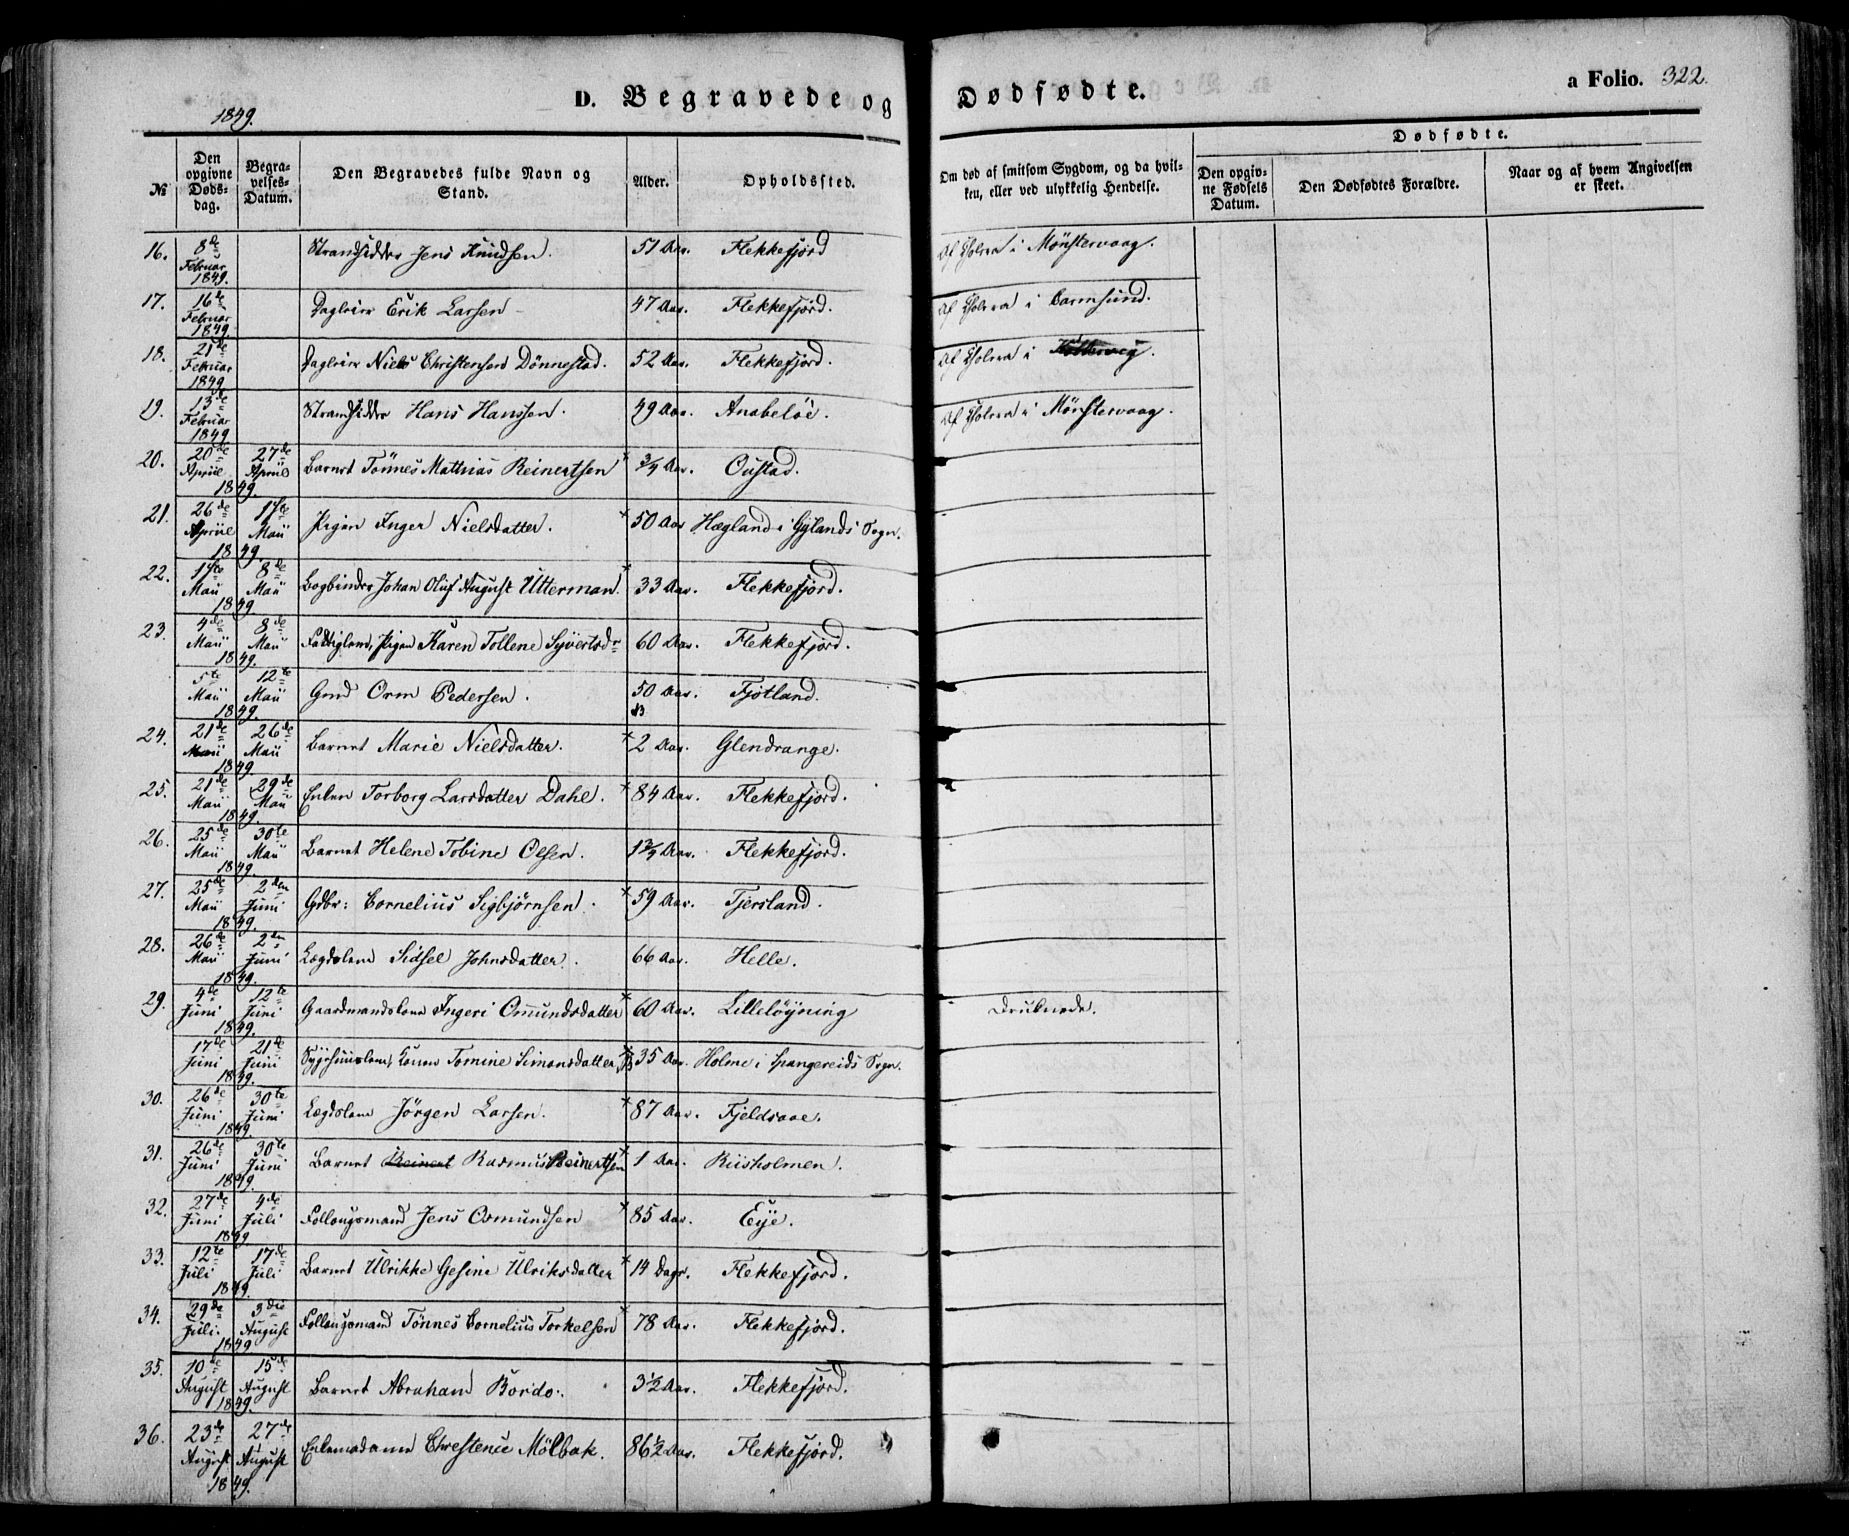 1849.
D. Begravede og Dødfødte. a Folio. 322.
Dødfødte.
№ Den opgivne Døds-dag. Begra-velses-Datum. Den Begravedes fulde Navn og Stand. Alder. Opholdssted. Om død af smitsom Sygdom, og da hvil-ken, eller ved ulykkelig Hendelse. Den opgiv-ne Fødsels Datum. Den Dødfødtes Forældre. Naar og af hvem Angivelsen er skeet.
16. 8de Februar 1849. Strandsidder Jens Knudsen. 51 Aar. Flekkefjord Af Cholera i Mönstervaag.
17. 16de Februar 1849. Dagleier Erik Larsen 47 Aar. Flekkefjord. Af Cholera i Carmsund.
18. 21de Februar 1849. Dagleier Niels Christensen Dönnestad. 52 Aar. Flekkefjord. Af Cholera i
19. 13de Februar 1849. Strandsidder Hans Hanssen. 49 Aar. Anabelöe. Af Cholera i Mönstervaag.
20. 20de Apriil 27de Apriil 1849. Barnet Tönnes Mathias Reinertsen × 3/4 Aar. Oustad.
21. 26de Apriil 1ste Maii 1849. Pigen Inger Nielsdatter. × 50 Aar Hægland i Gylands Sogn.
22. 1ste Maii 8de Maii 1849 Bogbinder Johan Oluf August Utterman. × 33 Aar. Flekkefjord.
23. 4de Maii 8de Maii 1849. Fattiglem, Pigen Karen Tollene Syvertsdr 60 Aar. Flekkefjord.
5te Maii 12te Maii 1849. Gmd Orm Pedersen. 50 Aar. Fjotland.
24. 21de Maii 26de Maii 1849 Barnet Marie Nielsdatter. × 2 Aar. Glendrange.
25. 21de Maii 29de Maii 1849. Enken Torborg Larsdatter Dahl. × 84 Aar. Flekkefjord.
26. 25de Maii 30te Maii 1849. Barnet Helene Tobine Olsen. 1 3/4 Aar. Flekkefjord.
27. 25de Maii 2den Juni 1849. Gdbr: Cornelius Sigbjørnsen. × 59 Aar. Tjersland.
28. 26de Maii 2den Juni 1849. Lægdslem Sidsel Johnsdatter. 66 Aar. Helle.
29. 4de Juni 12te Juni 1849 Gaardmandskone Ingeri Omundsdatter × 60 Aar. Lilleløyning Druknede.
17de Juni 21de Juni 1849. Sygehuuslem, Konen Tomine Simonsdatter, 35 Aar. Holme i Spangereids Sogn.
30. 26de Juni 30te Juni 1849. Lægdslem Jörgen Larsen. × 87 Aar. Fjeldsaae.
31. 26de Juni 30te Juni 1849 Barnet Reinert Rasmus Reinertsen × 1 Aar. Riisholmen.
32. 27de Juni 4de Juli 1849 Follougsmand Jens Osmundsen × 85 Aar. Eye.
33. 12te Juli 17de Juli 1849. Barnet Ulrikke Gesine Ulriksdatter × 14 Dage. Flekkefjord.
34. 29de Juli. 3die August 1849 Follougsmand Tönnes Cornelius Torkelsen × 78 Aar. Flekkefjord.
35. 10de August 15de August 1849. Barnet Abraham Bordo. 3 1/2 Aar. Flekkefjord.
36. 23de August 27de August 1849. Enkemadame Chrestence Mölbak. 86 1/2 Aar. Flekkefjord.